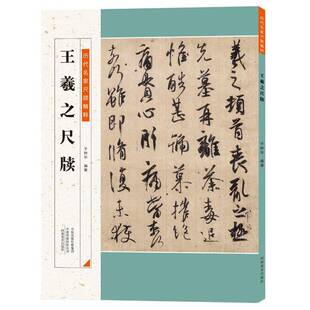 历代名家尺牍精粹
王羲之尺牍
羲之頓首喪亂之極
先墓再離荼毒追
惟酷甚號慕摧絕
痛貫心肝痛當奈何
奈何雖即脩復未獲
历代名家尺牍精粹
王羲之尺牍